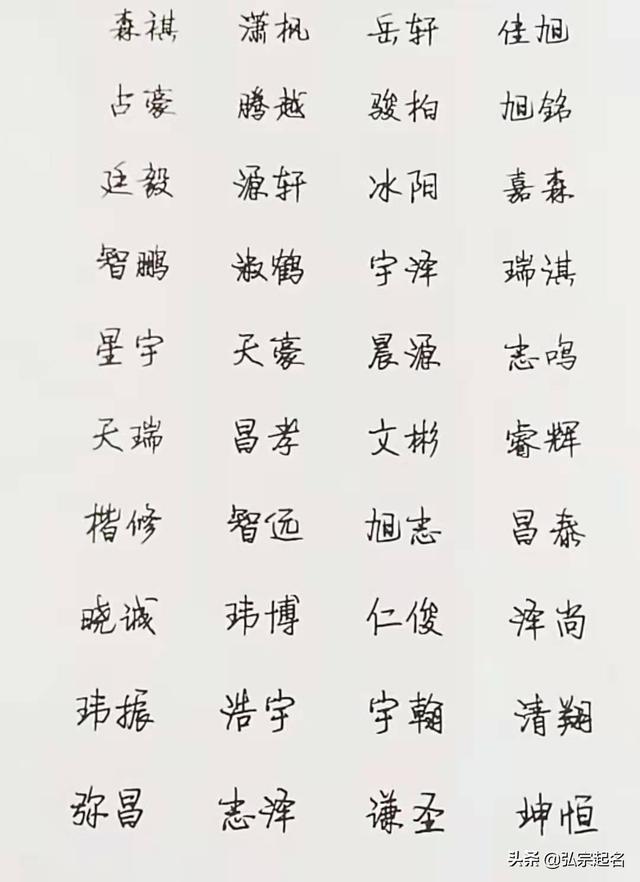 森祺 潇枫 岳轩 佳旭
占豪 腾越 骏柏 旭铭
廷毅 源轩 冰阳 嘉森
智鹏 淑鹤 宇泽 瑞淇
星宇 天豪 晨源 志鸣
天瑞 昌孝 文彬 睿辉
楷修 智远 旭志 昌泰
晓诚 玮博 仁俊 泽尚
玮振 浩宇 宇翰 清翔
弥昌 志泽 谦圣 坤恒
头条 @弘宗起名